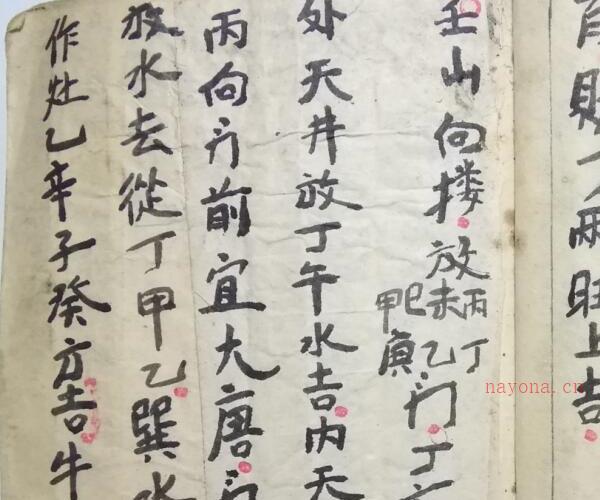 育財丁兩旺上吉
壬山向搂放丙丁未巳乙甲寅门丁
处天井放丁午水吉内天
丙向门前宜大唐门
放水去從丁甲乙巽水
作灶乙辛子癸方吉牛
nayona.cn